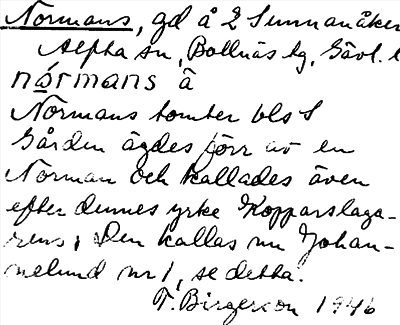 Normans, gd å 2 Sunnanåker
Alfta sn, Bollnäs tg, Gävl. l
nórmans â
Normans tomter bls S
Gården ägdes förr av en
Norman och kallades även
efter dennes yrke Kopparslaga-
rens, Den kallas nu Johan-
nelund nr 1, se detta.
T. Birgerson 1946